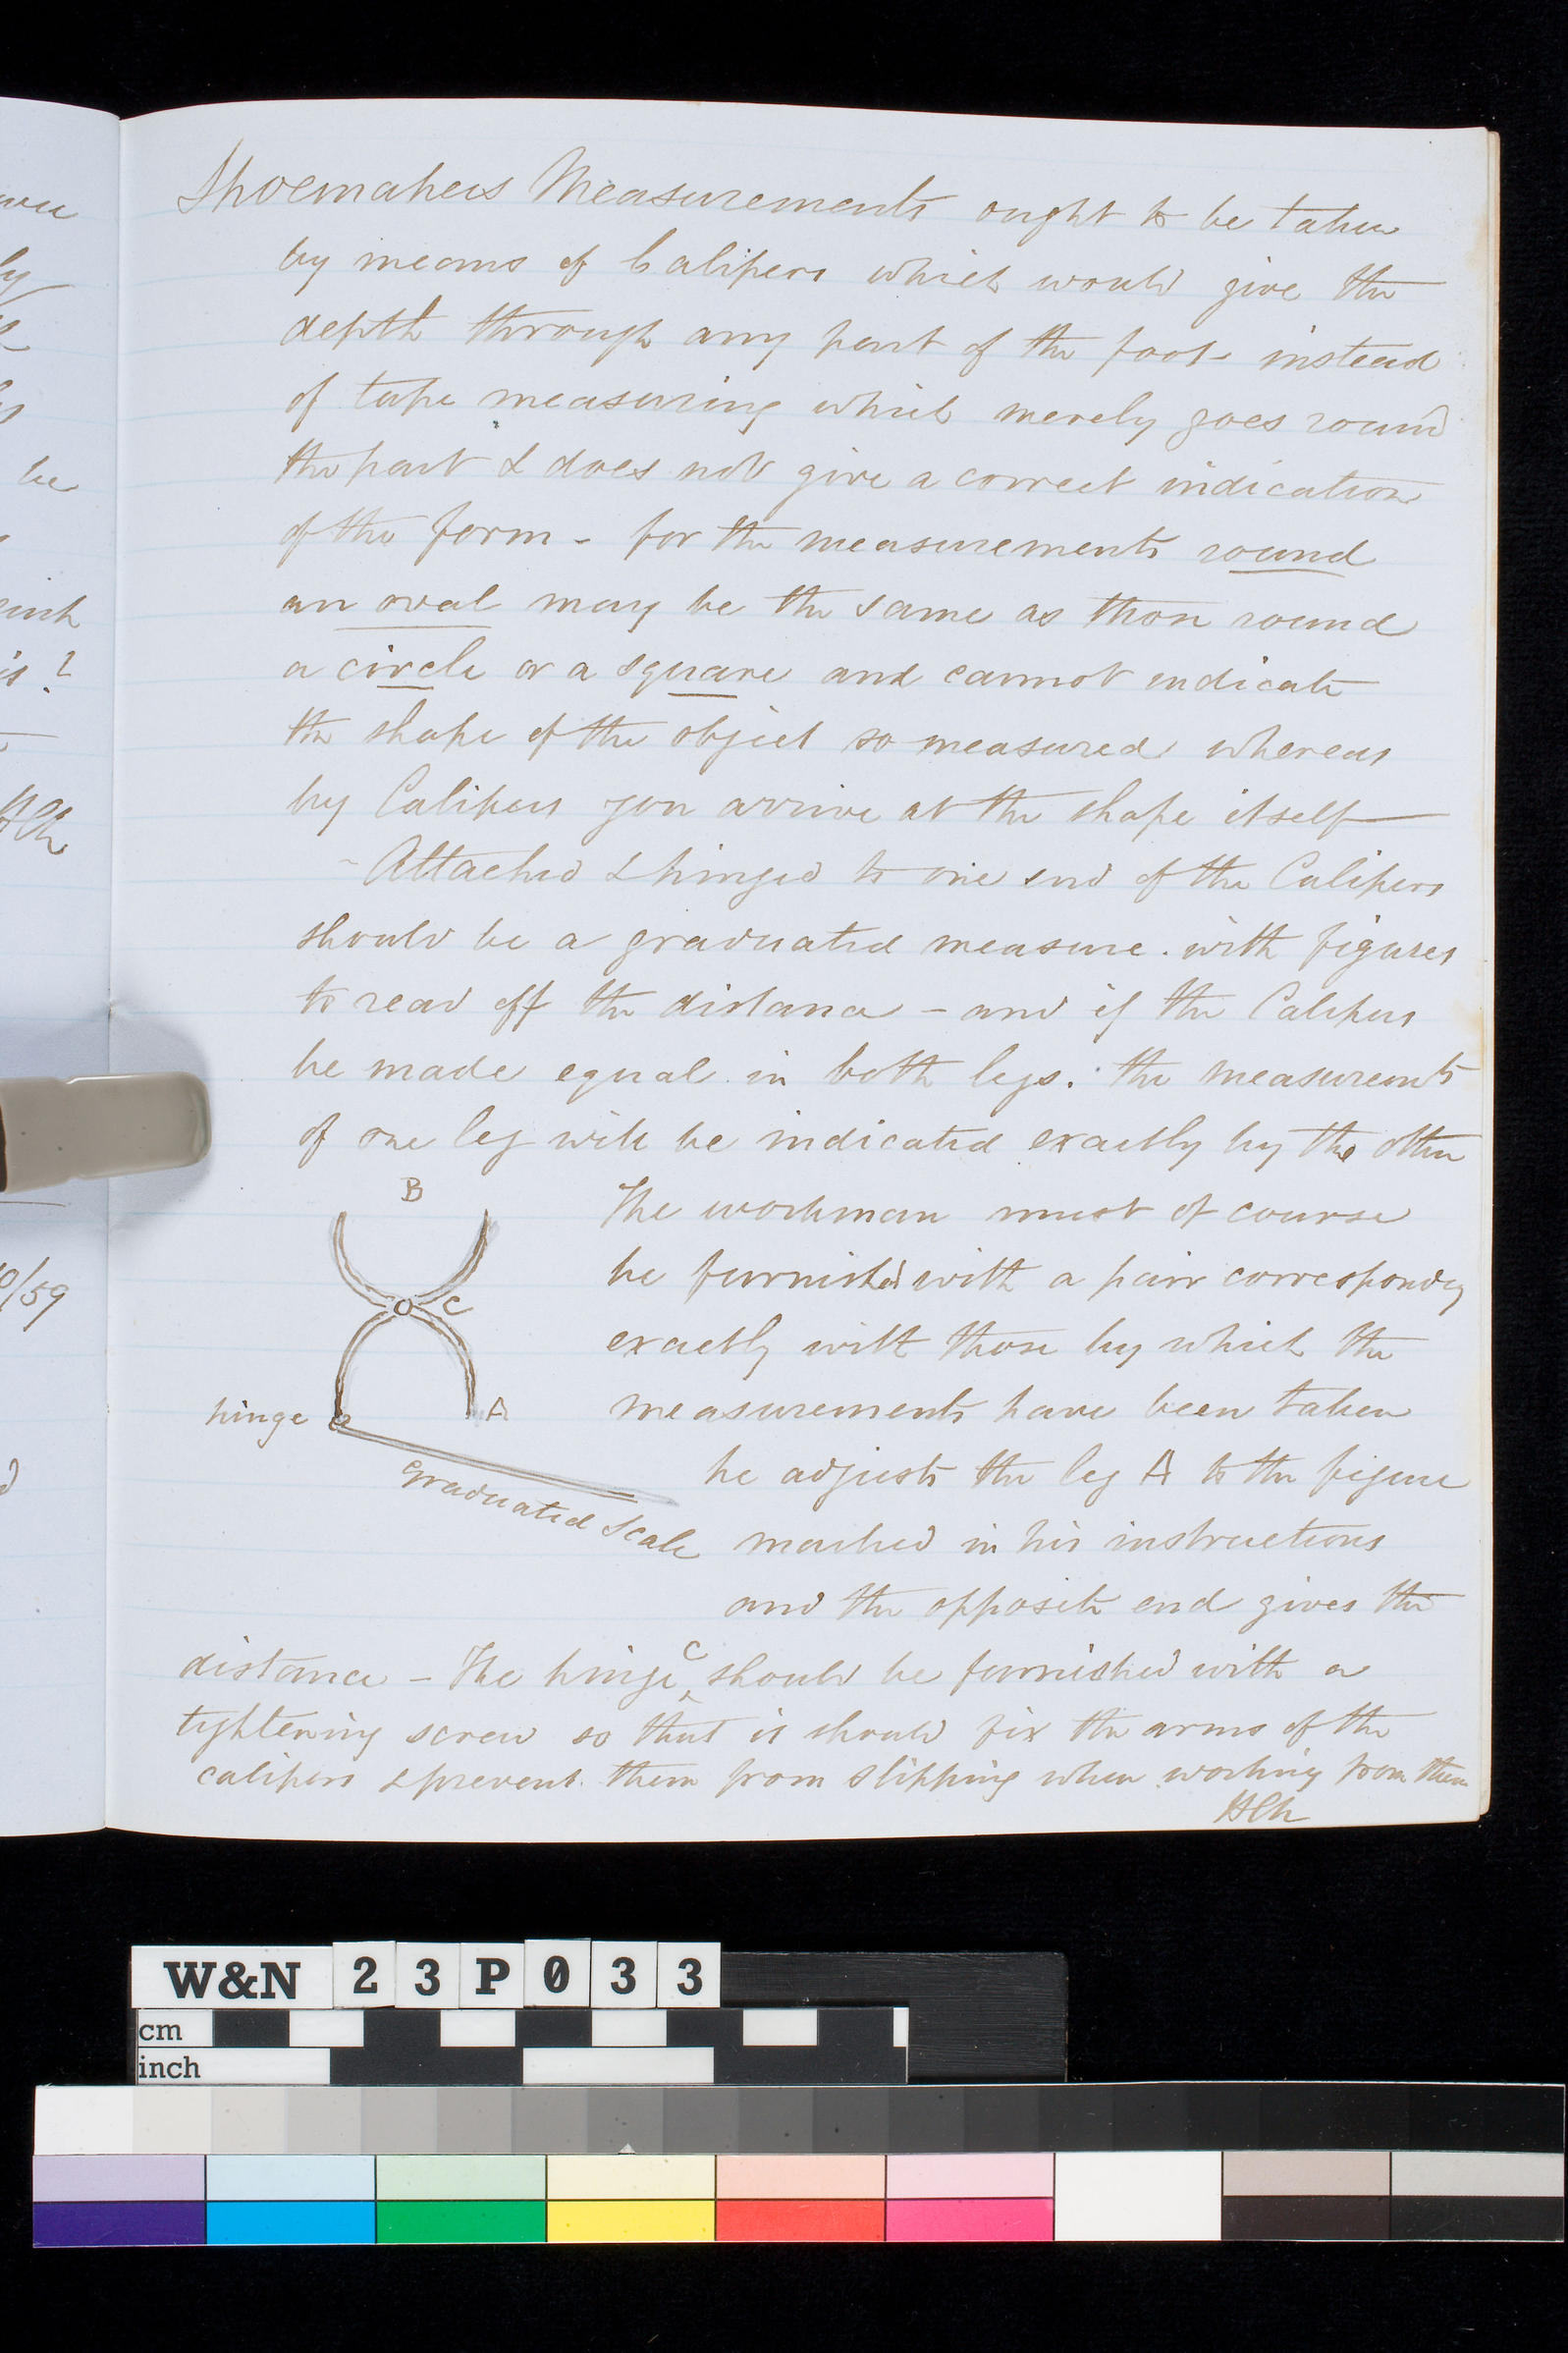 Shoemakers Measurements ought to be taken
by means of Calipers which would give the
depth through any part of the foot instead
of tape measuring which merely goes round
the part & does not give a correct indication
of the form - for the measurements round
an oval may be the same as those round
a circle or a square and cannot indicate
the shape of the object so measured whereas
by Calipers you arrive at the shape itself
- Attached & hinged to one end of the Calipers
should be a graduated measure. with figures
to read off the distance - and if the Calipers
be made equal in both legs. the measurements
of one leg will be indicated exactly by the other
B
The workman must of course
be furnished with a pair corresponding
C
exactly with those by which the
hinge
A
measurements have been taken
he adjusts the leg A to the figure
graduated scale
marked in his instructions
and the opposite end gives the
distance - The hinge C should be furnished with a
tightening screw so that it should fix the arms of the
calipers & prevent them from slipping when working from them
HCN
be
is?
0/59
W&N 23P033
cm
inch